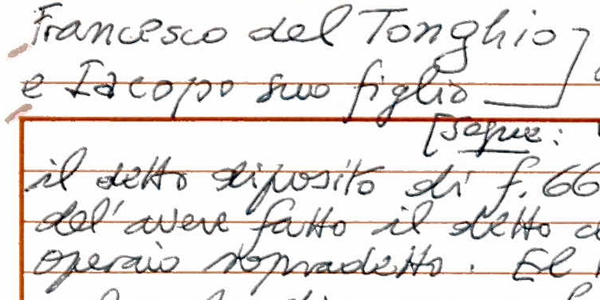 Francesco del Tonghio
e Iacopo suo figlio
[segue:
il detto diposito di f. 66
del' avere fatto il detto
operaio sopradetto. El